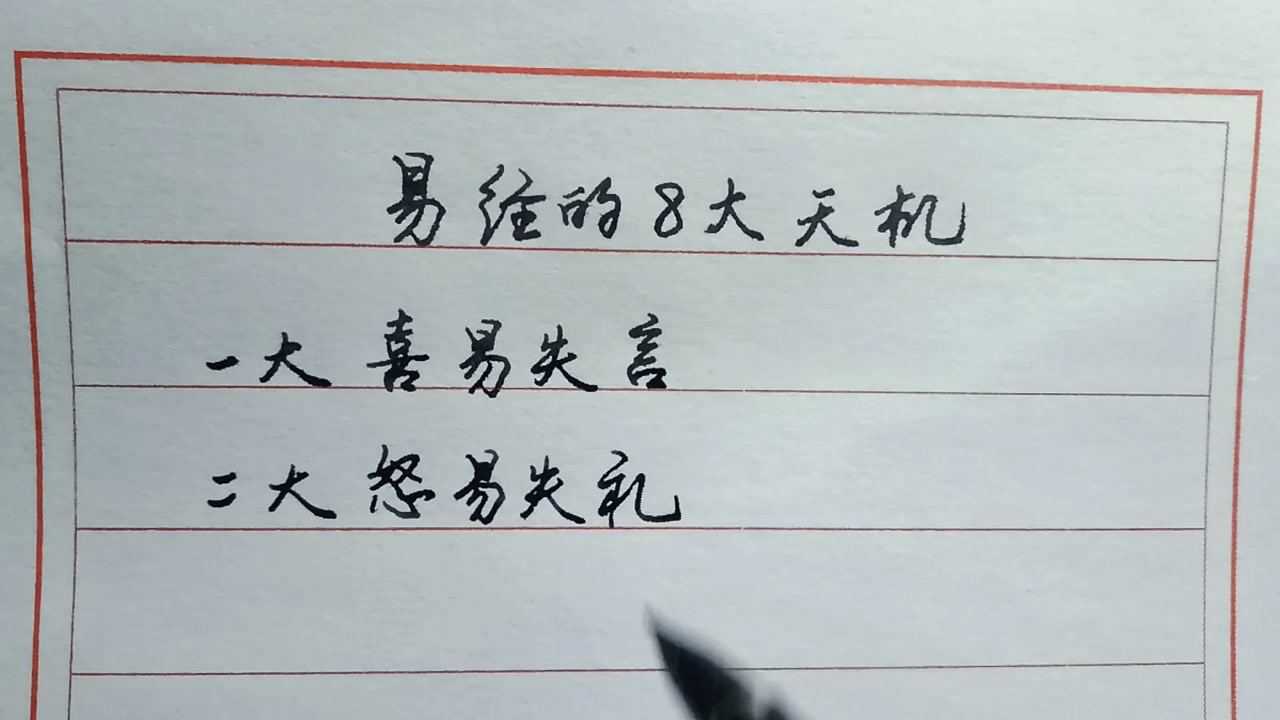 易经的8大天机
一大喜易失言
二大怒易失礼